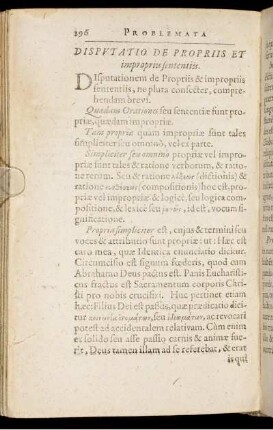 296 PROBLEMATA
DISPVTATIO DE PROPRIIS ET
impropriis sententiis.
DIsputationem de Propriis & impropriis
sententiis, ne plura consecter, compre-
hendam brevi.
Quædam Orationum seu sententiæ sunt pro-
priæ, quædam impropriæ.
Tam propriæ quam impropriæ sunt tales
simpliciter seu omnino, vel ex parte.
Simpliciter seu omnino propriæ vel impro-
priæ sunt tales & ratione verborum, & ratio-
ne rerum. Seu & ratione (dictionis) &
ratione (compositionis) hoc est, pro-
priæ vel impropriæ & logicè, seu logica com-
positione, & lexicè seu id est, vocum si-
gnificatione.
Propria simpliciter est, cujus & termini seu
voces & attributio sunt propriæ: ut: Hæc est
caro mea, quæ Identica enunciatio dicitur.
Circumcisio est signum fœderis, quod cum
Abrahamo Deus pactus est. Panis Eucharisti-
cus fractus est Sacramentum corporis Chri-
sti pro nobis crucifixi. Huc pertinet etiam
hæc: Filius Dei est passus, quæ prædicatio dici-
tur seu ac revocari
potest ad accidentalem relativam. Cùm enim
ex passo solido servi seu animæ fue-
rit, Deus tamen illam ad se referebat, & erat
is qui